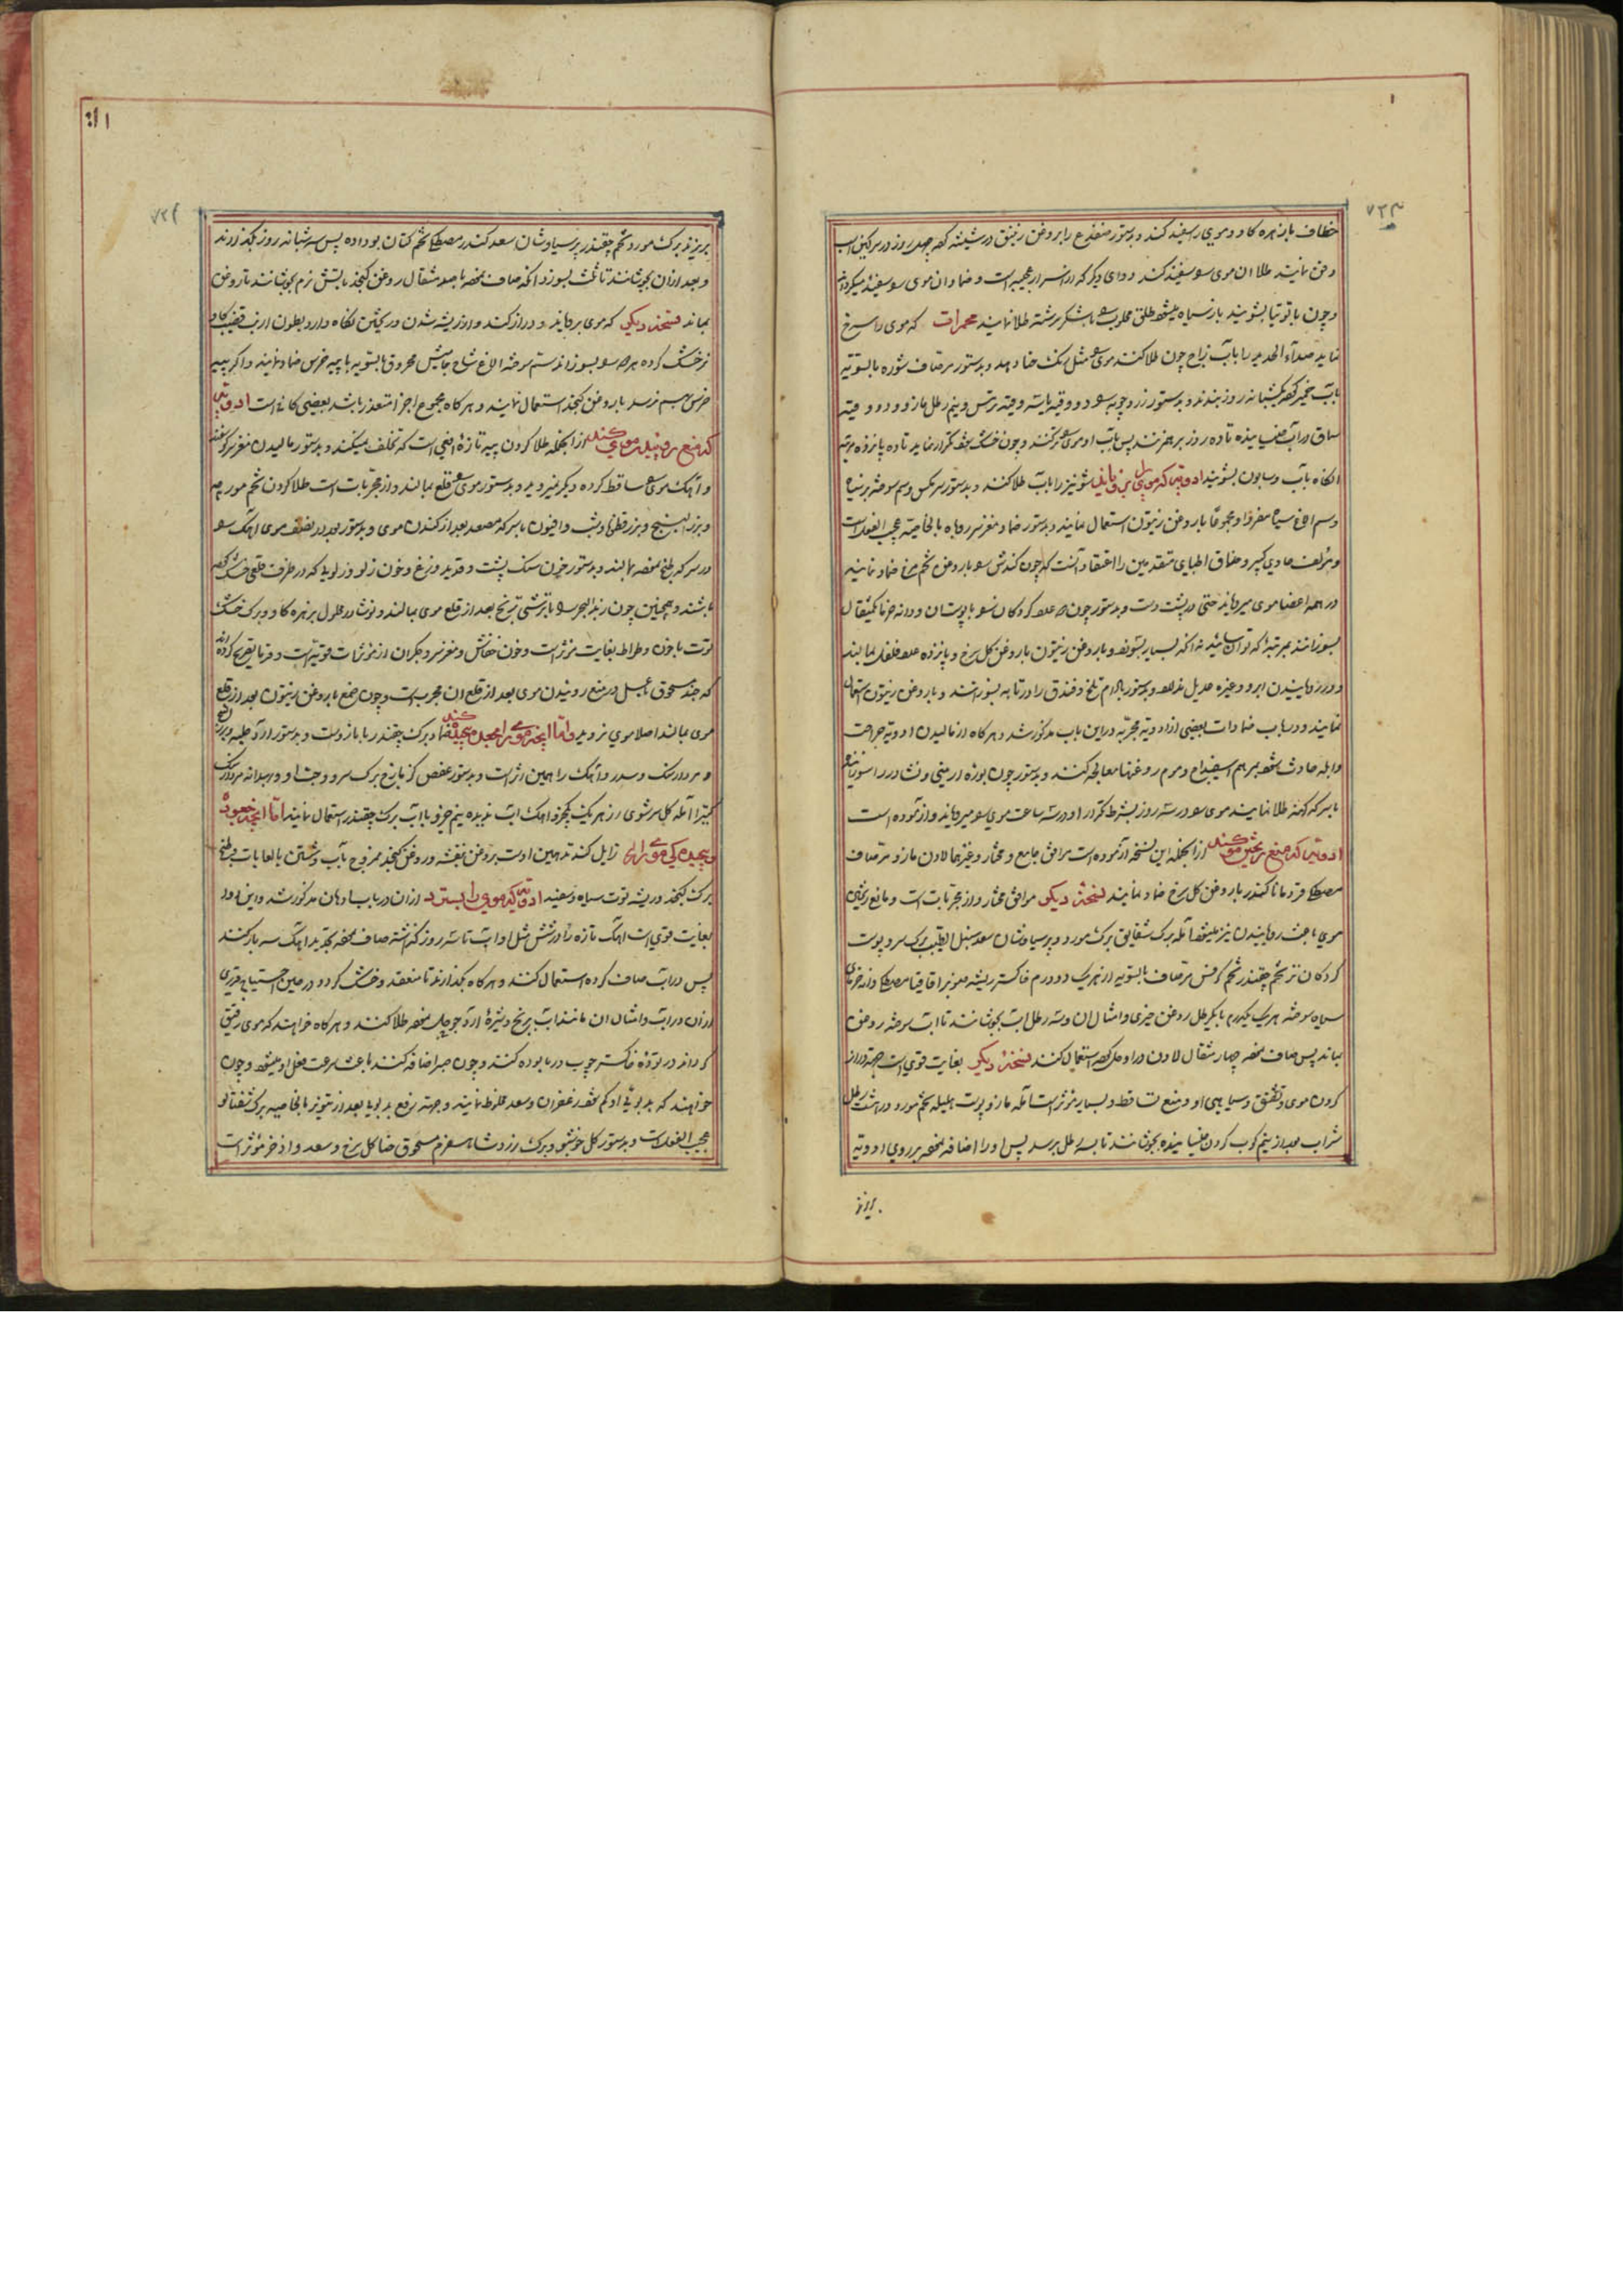 ۷۲۳
خطاف با زهره کاو و موی را سفید کند و بدستور ضفدع را بروغن زنبق در شیشه کرده چهل روز در سرکین اسب
دفن نمایند طلاء آن موی سفید کند دوای دیگر که از اسرار عجیبه است و ضماد آن موی سفید میکرداند
و چون با توتیا بشویند باز سیاه میشود طلق محلوب با شکر سرشته طلا نمایند محمرات که موی را سرخ
نماید صداء الحدید را بآب زاج چون طلا کنند موی مثل رنک حنا دهد و بدستور مر صاف شوره بالسویه
بآب خمیر کرده یکشبانه روز بندند و بدستور زردچوبه دو وقیه
سماق در آب خیسانیده تا ده روز بر هم زنند پس بآب او موی تر کنند و چون خشک شود تکرار نماید تا ده پانزده مرتبه
انکاه بآب و صابون بشویند ادویه که موی را برویاند شونیز را بآب طلا کنند و بدستور مکس و سم سوخته بز سیاه
و سم الاغ سیاه مفردا و مجموعا با روغن زیتون استعمال نمایند و بدستور ضماد مغز سر روباه بالخاصیه عجیب الفعل است
و مؤلف حاوی کبیر و حذاق اطبای متقدمین را اعتقاد آنست که چون کندش با روغن تخم مرغ ضماد نمایند
در همه اعضا موی میرویاند حتی در پشت دست و بدستور چون عدد کردکان با پوستان و دانه خرما یکمثقال
بسوزانند بمرتبه که توان سائید نه آنکه بسیار بسوزد و با روغن زیتون یا روغن کل سرخ و پانزده عدد فلفل بمالند
و در رویانیدن ابرو و غیره عدیل ندارد و بدستور بادام تلخ و فندق را در تابه بسوزانند و با روغن زیتون استعمال
نمایند و در باب ضمادات بعضی از ادویه مجربه در این باب مذکور شد و هرکاه از مالیدن ادویه جراحت
و ابله حادث شود بمرهم اسفیداج و موم روغنها معالجه کنند و بدستور چون بوره ارمنی و نشادر را سوزانیده
با سرکه کهنه طلا نمایند موی در سه روز بشرط تکرار و در سه ساعت موی میرویاند و از موده است
ادویه که منع ریختن مو کند از انجمله این نسخه آزموده است موافق جامع و مختار و غیرهما لادن مازو مر صاف
مصطکی قردمانا کندر با روغن کل سرخ ضماد نمایند نسخه دیگر موافق مختار و از مجربات است و مانع ریختن
موی باعث رویانیدن نیز میشود آمله برک شقایق برک مورد و پرسیاوشان سعد سنبل الطیب برک سرو پوست
کردکان تر تخم چقندر تخم کرفس مر صاف بالسویه از هریک دو درم خاکستر ریشه صنوبر اقاقیا مصطکی دانه خرمای
سیاه سوخته هریک یکدرم با یکرطل روغن خیری و امثال آن و سه رطل آب بجوشانند تا آب سوخته روغن
بماند پس صاف نموده چهار مثقال لادن در او حل کرده استعمال کنند نسخه دیگر بغایت قوی است جهة دراز
کردن موی و تشقق و سیاهی او و منع تساقط و بسیار مؤثر است آمله مازو پوست هلیله تخم مورد در هشت رطل
شراب بعد از نیم کوب کردن خیسانیده بجوشانند تا بسه رطل برسد پس او را اضافه نموده بر روی ادویه
بریزند
۷۲۴
بریزند برک مورد تخم چقندر پرسیاوشان سعد کندر مصطکی تخم کتان بو داده پس سه شبانه روز بگذارند
و بعد از آن بجوشانند تا ثلث بسوزد آنکه صاف نموده با صد مثقال روغن کنجد بآتش نرم بجوشانند تا روغن
بماند نسخه دیگر که موی برویاند و دراز کند و از ریشه شدن و ریختن نکاه دارد بطون ارنب قضیب کاو
نر خشک کرده هر دو بسوزانند سم سوخته الاغ شاخ جامیش محروق بالسویه با پیه خرس ضماد نمایند و اکر پیه
خرس بهم نرسد با روغن کنجد استعمال نمایند و هرکاه مجموع اجزا متعذر باشد بعضی کافی است ادویه
که منع روئیدن موی کند از انجمله طلا کردن پیه تازه افعی است که تخلف نمیکند و بدستور مالیدن مغز سر کوسفند
و آهک موی ساقط کرده دیگر نمیروید و بدستور موی قلع بمالند و از مجربات است طلا کردن تخم مورچه
و بزرالبنج و بزر قطونا و شب و افیون با سرکه مصعد بعد از کندن موی و بدستور
در سرکه طبخ نموده بمالند و بدستور خون سنک پشت و قدید وزغ و خون زلو و زلوئی که در ظرف قلعی خشک کرده
باشند و همچنین چون زبد البحر با ترشی ترنج بعد از قلع موی بمالند و نوشادر محلول بزهره کاو و برک خشک
توت با خون وطواط بغایت مؤثر است و خون خفاش و مغز سر و جکر آن از مؤثرات قویه است و قرمانی تصریح کرده
که جند مسحوق بعسل در منع روئیدن موی بعد از قلع آن مجرب است و چون صمغ با روغن زیتون بعد از قلع
موی بمالند اصلا موی نروید و اما آنچه موی را مجعد و پیچیده کند ضماد برک چقندر با مازو است و بدستور آرد حلبه و بزرالبنج
و مردارسنک و سدر و آهک را همین اثر است و بدستور عفص کزمازج برک سرو و جفت او و بهدانه مردارسنک
کتیرا آمله کل سرشوی از هریک یکجزو آهک آب ندیده نیم جزو بآب برک چقندر استعمال نمایند اما آنچه جعودت
و پیچیدکی موی را زایل کند تدهین اوست بروغن بنفشه و روغن کنجد ممزوج بآب و شستن با لعابات و طبخ
برک کنجد و ریشه توت سیاه و سفید ادویه که موی را بسترد از آن در باب ادهان مذکور شد و این دوا
بغایت قوی است آهک تازه را در شش مثل او آب تا سه روز کذاشته صاف نموده تجدید آهک سه بار کنند
پس در آب صاف کرده استعمال کنند و هرکاه بکذارند تا منعقد و خشک کردد در حین احتیاج قدری
از آن در آب و امثال آن مانند آب برنج و شیره آرد جو حل نموده طلا کنند و هرکاه خواهند که موی رقیق
کرداند در توده خاکستر چوب در بابوده کنند و چون صبر اضافه کنند باعث سرعت فعل او میشود و چون
خواهند که بدبوئی او کم شود زعفران و سعد مخلوط نمایند و جهة رفع بدبویا بعد از تنویر بالخاصیه برک شفتالو
عجیب الفعل است و بدستور کل خوشبو و برک رز و شاه سفرم مسحوق حنا کل سرخ و سعد و اذخر مؤثر است